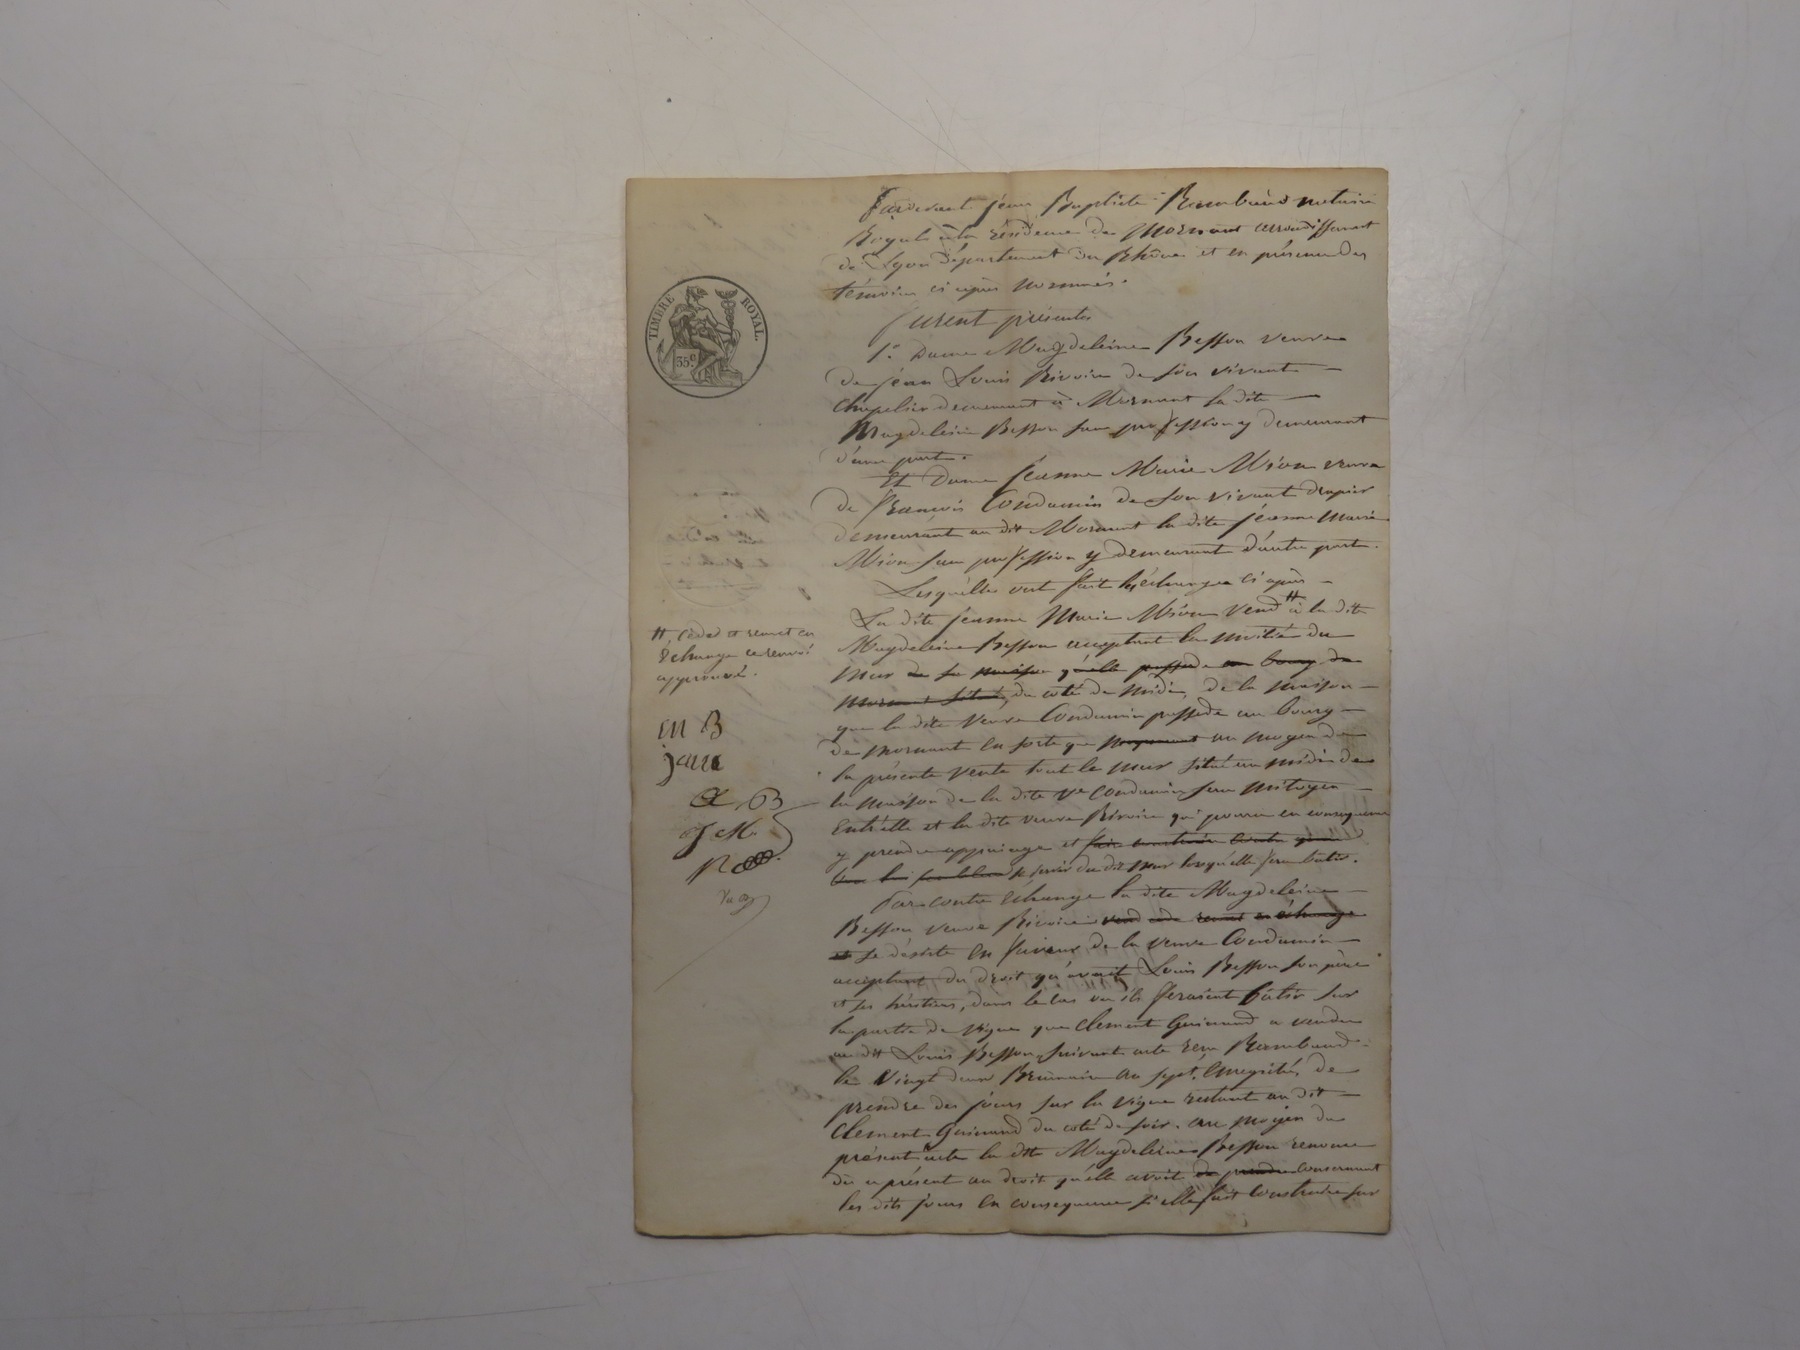 Pardevant jéan Baptiste Rambaud notaire
Royal à la résidence de Mornant arrondissement
de Lyon département du Rhône et en présence des
témoins ci après nommés.
furent présentes
1.° Dame Magdeleine Besson veuve
de jéan Louis Rivoire de son vivant
Chapelier demeurant à Mornant la dite
Magdeleine Besson sans profession y demeurant
d'une part.
Et Dame jéanne Marie Mion veuve
de François Condamin de son vivant drapier
demeurant au dit Mornant la dite jéanne Marie
Mion sans profession y demeurant d'autre part.
Lesquelles ont fait l'échange ci après
La dite jéanne Marie Mion vend # à la dite
Magdeleine Besson acceptant la moitié du
mur de sa maison qu'elle possede au bourg de
mornant situé, du coté de midi, de la maison
que la dite veuve Condamin possede au bourg
de mornant en sorte que moyennant au moyen de
la présente vente tout le mur situé au midi de
la maison de la dite Ve Condamin sera mitoyen
entr'elle et la dite veuve Rivoire qui pourra en consequence
y prendre appuiage et
se servir du dit mur lorsqu'elle fera batir.
Par contre échange la dite Magdeleine
Besson veuve Rivoire vend cede remet en échange
et se désiste en faveur de la veuve Condamin
acceptant du droit qu'avait Louis Besson son père
et ses héritiers, dans le cas ou ils feraient batir sur
la partie de vigne que Clement Guinand a vendu
au dit Louis Besson, suivant acte reçu Rambaud
le vingt deux Brumaire an sept, enregistré, de
prendre des jours sur la vigne restant au dit
Clement Guinand du coté de soir. au moyen du
présent acte la dte Magdeleine Besson renonce
dès à présent au droit qu'elle avoit de prendre concernant
les dits jours en consequence si elle fait construire sur
TIMBRE ROYAL.
35c.
# cède et remet en
échange ce renvoi
approuvé.
M B
jMM
B
J M
R